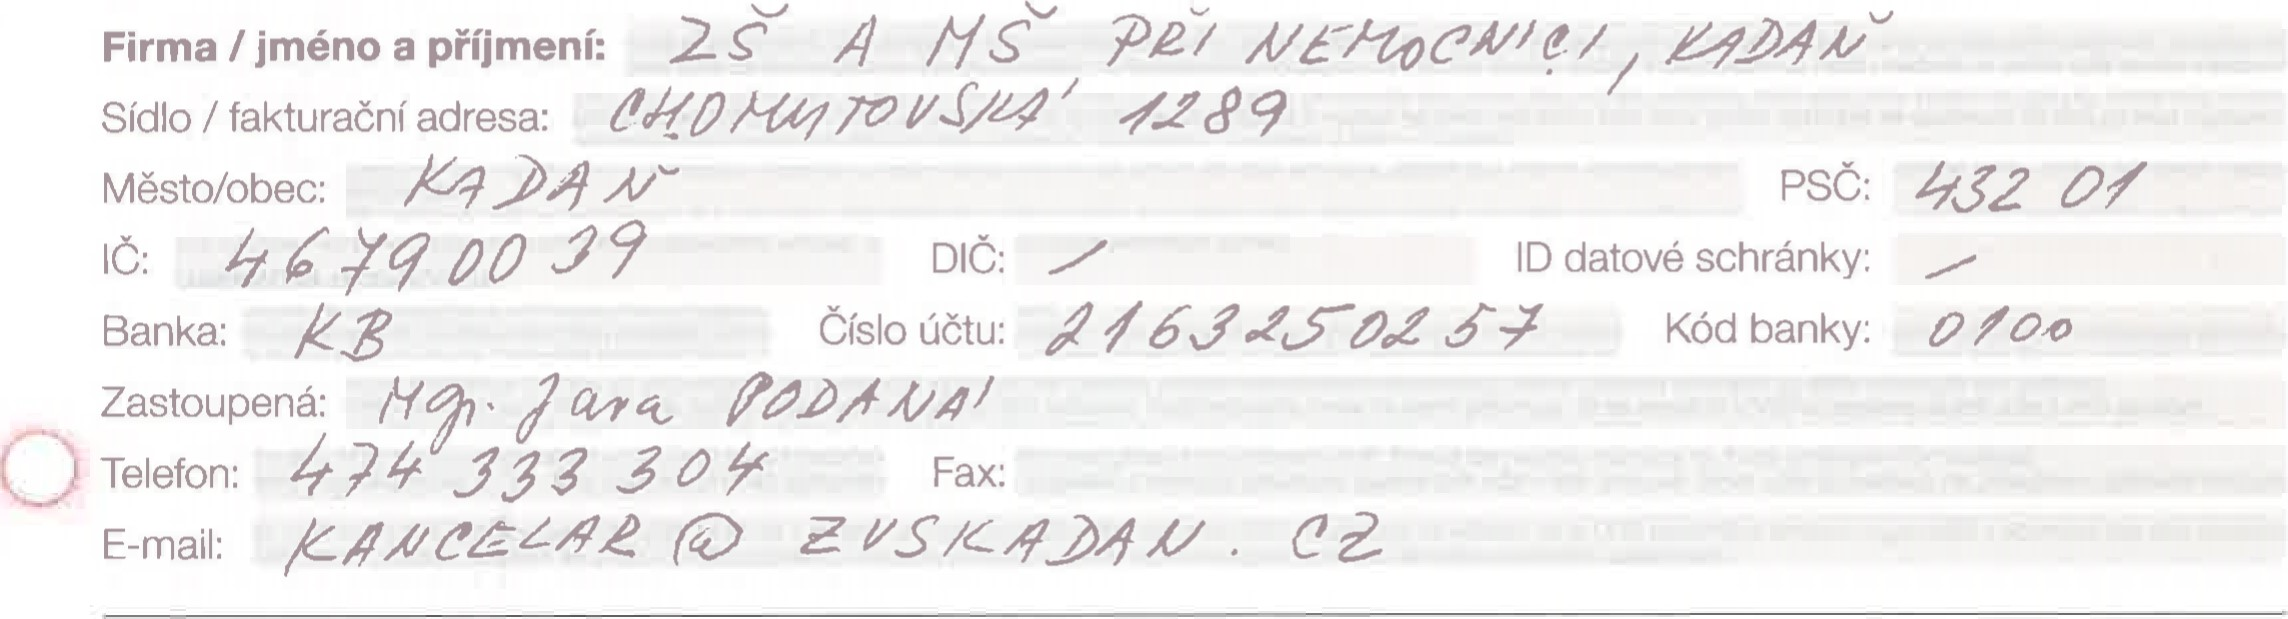 Firma / jméno a příjmení: ZŠ A MŠ PŘI NEMOCNICI, KADAŇ
Sídlo / fakturační adresa: CHOMUTOVSKÁ 1289
Město/obec: KADAŇ PSČ: 432 01
IČ: 46790039 DIČ: / ID datové schránky: /
Banka: KB Číslo účtu: 2163250257 Kód banky: 0100
Zastoupená: Mgr. Jara PODANÁ
Telefon: 474 333 304 Fax:
E-mail: KANCELAR@ZVSKADAN.CZ